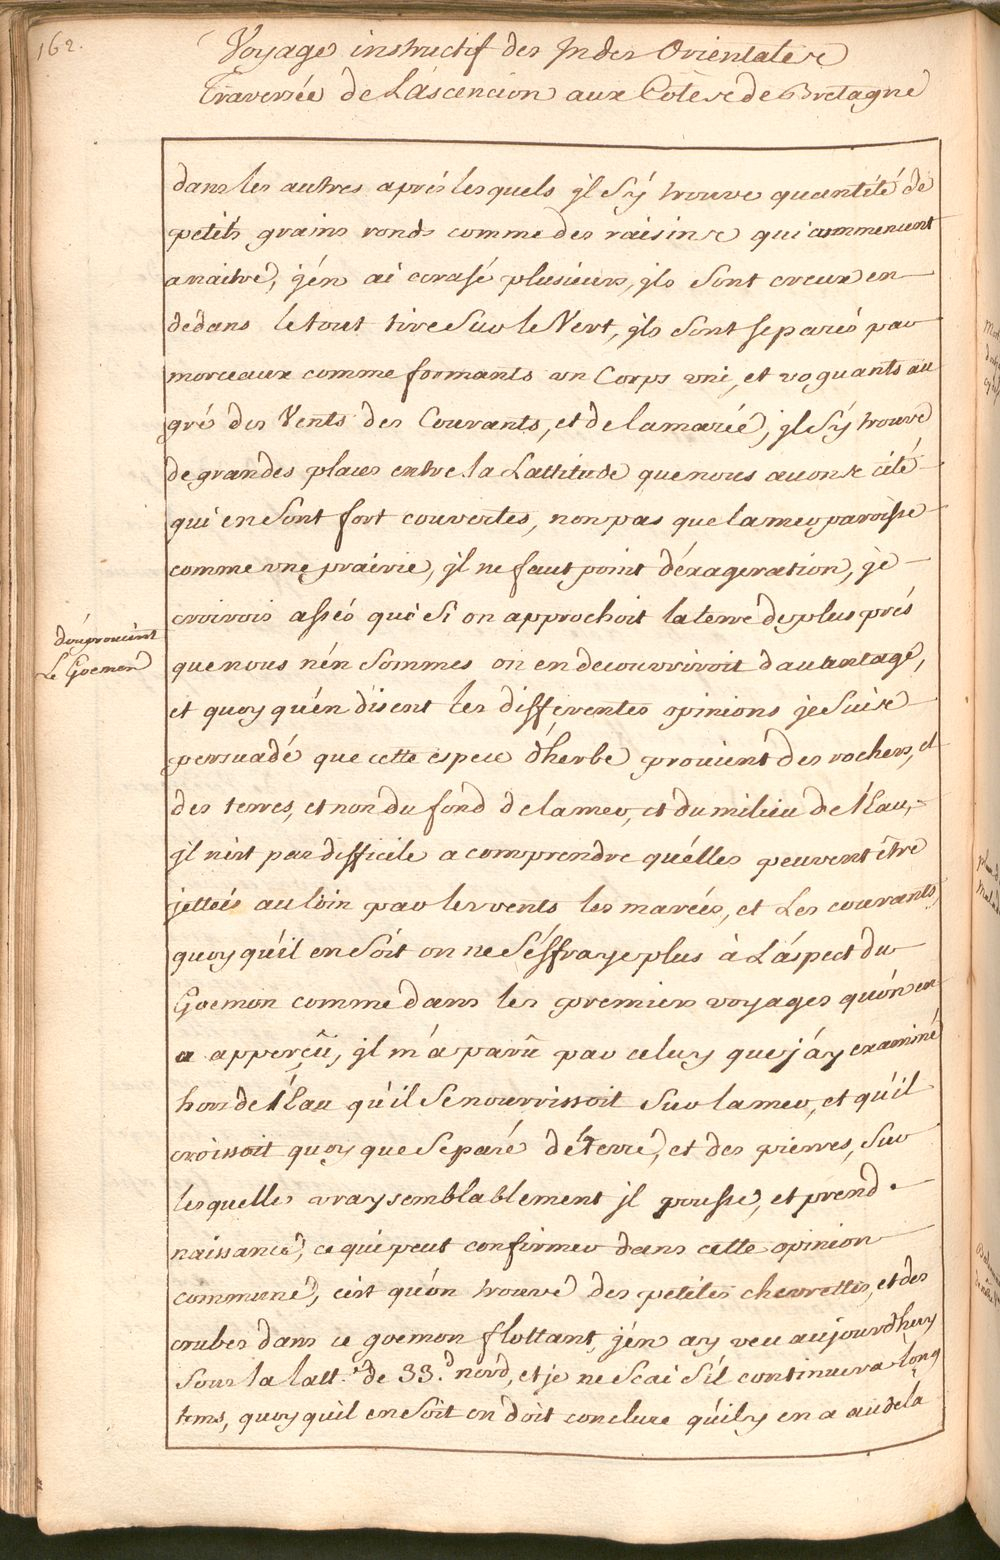 162.
Voyage instructif des Indes Orientales
Traversée de L'áscencion aux Côtes de Bretagne
dans les autres aprés lesquels jl s'ÿ trouve quantité de
petits grains ronds comme des raisins qui commencent
a naitre, j'én ai ecrasé plusieurs, jls sont creux en
dedans le tout tire sur le Vert, jls sont separés par
morceaux comme formants un Corps uni, et voguants au
gré des Vents des Courants, et de la marée, jl s'ÿ trouve
de grandes places entre la Lattitude que nous avons cité
qui en sont fort couvertes, non pas que la mer paroisse
comme une prairie, jl ne faut point d'éxageration, je
croirois assés qui si on approchoit la terre de plus prés
d'où provient
Le Goemon
que nous n'én sommes on en decouvriroit davantage,
et quoy qu'én disent les differentes opinions je suis
persuadé que cette espece d'herbe provient des rochers, et
des terres, et non du fond de la mer, et du milieu de l'Eau,
jl n'est pas difficile a comprendre qu'élles peuvent être
jettées au loin par les vents les marées, et Les courants,
quoy qu'il en soit on ne s'éffraye plus à L'áspect du
Goemon comme dans les premiers voyages qu'ón en
a apperçû, jl m'a parû par celuy que j'áy examiné
hors de l'Eau qu'il se nourrissoit sur la mer, et qu'il
croissoit quoy que separé de terre, et des pierres, sur
lesquelles vraysemblablement jl pousse, et prend
naissance, ce qui peut confirmer dans cette opinion
commune, c'est qu'ón trouve des petites chevrettes, et des
crabes dans ce goemon flottant, j'én ay veu aujourdhuy
sous la latt.e de 33.d nord, et je ne scai s'íl continuera long
tems, quoy qu'il en soit on doit conclure qu'il y en a au dela